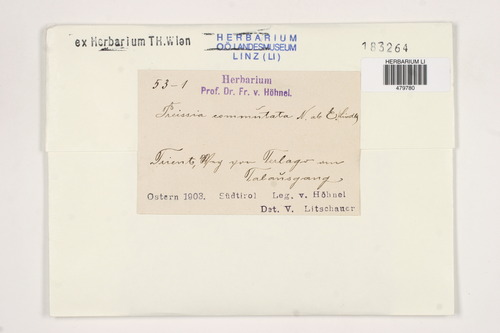 ex Herbarium TH.Wien
HERBARIUM
O.Ö.LANDESMUSEUM
LINZ (LI)
183264
HERBARIUM LI
479780
53-1
Herbarium
Prof. Dr. Fr. v. Höhnel.
Preissia commutata N. ab E.
Trient, Weg von Terlago am
Talausgang
Ostern 1903. Südtirol Leg. v. Höhnel
Det. V. Litschauer